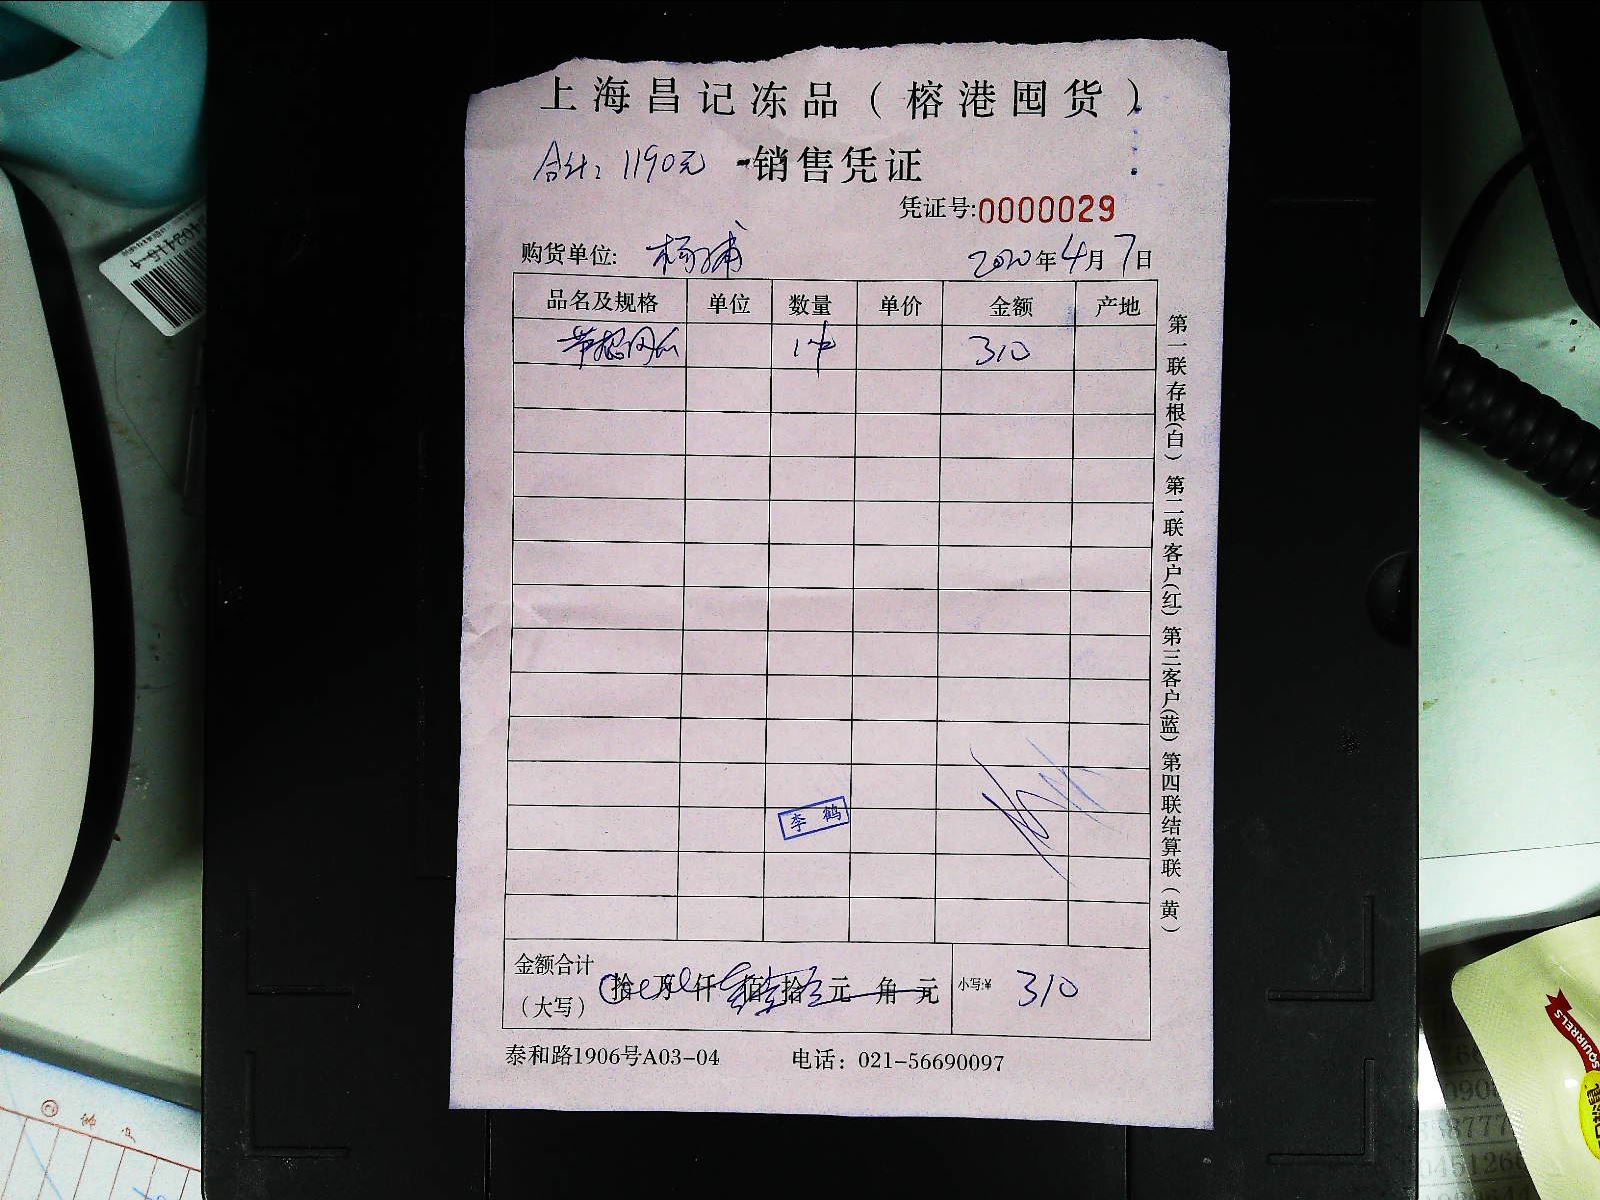 上海昌记冻品（榕港囤货）
合计：1190元 销售凭证
凭证号:0000029
购货单位: 杨浦 2020年4月7日
品名及规格 单位 数量 单价 金额 产地
1件 310
李鹤
金额合计（大写） 拾 万 仟 佰 拾 元 角 元 小写:¥ 310
泰和路1906号A03-04 电话：021-56690097
第一联存根(白) 第二联客户(红) 第三客户(蓝) 第四联结算联(黄)
SQUIRRELS